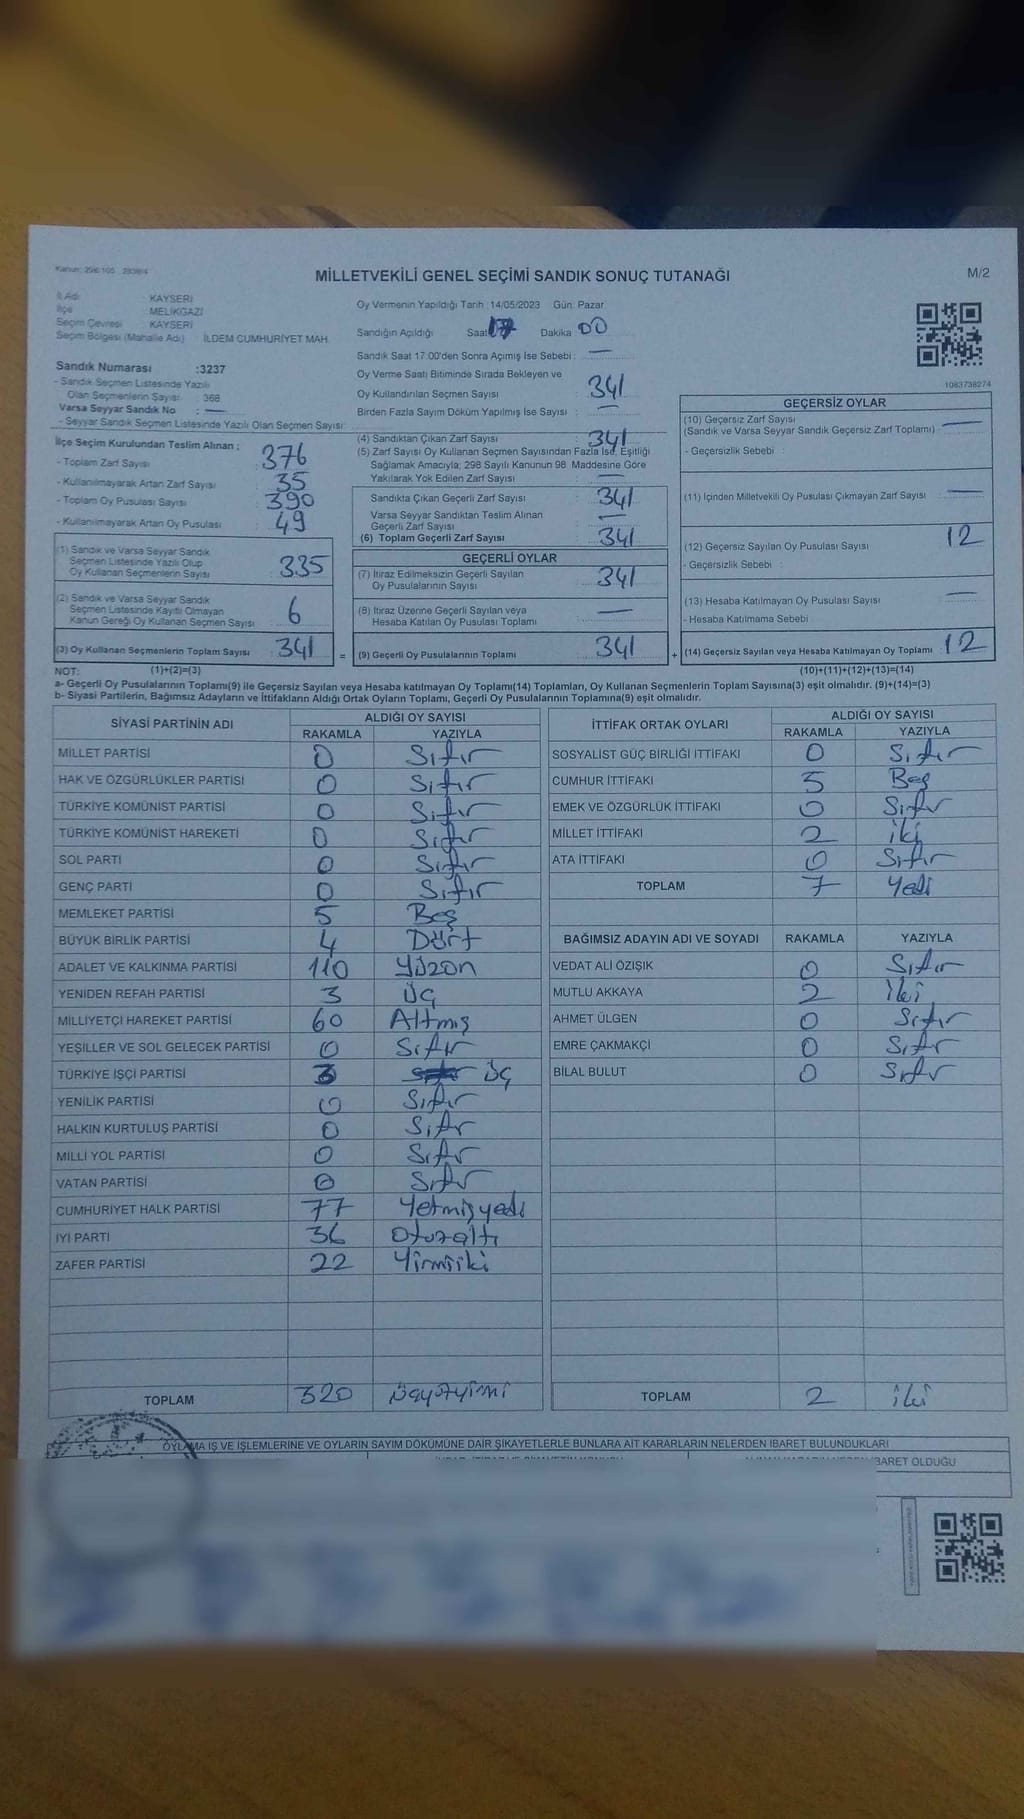 MİLLETVEKİLİ GENEL SEÇİMİ SANDIK SONUÇ TUTANAĞI
M/2
İl Adı : KAYSERİ
İlçe : MELİKGAZİ
Seçim Çevresi : KAYSERİ
Seçim Bölgesi (Mahalle Adı) : İLDEM CUMHURİYET MAH.
Oy Vermenin Yapıldığı Tarih :14/05/2023 Gün: Pazar
Sandığın Açıldığı Saat 17 Dakika 00
Sandık Saat 17.00'den Sonra Açımış İse Sebebi : —
Oy Verme Saati Bitiminde Sırada Bekleyen ve
Oy Kullandırılan Seçmen Sayısı 341
Birden Fazla Sayım Döküm Yapılmış İse Sayısı : —
1083738274
Sandık Numarası :3237
- Sandık Seçmen Listesinde Yazılı
Olan Seçmenlerin Sayısı : 368
Varsa Seyyar Sandık No : —
- Seyyar Sandık Seçmen Listesinde Yazılı Olan Seçmen Sayısı:
İlçe Seçim Kurulundan Teslim Alınan ;
- Toplam Zarf Sayısı : 376
- Kullanılmayarak Artan Zarf Sayısı : 35
- Toplam Oy Pusulası Sayısı : 390
- Kullanılmayarak Artan Oy Pusulası : 49
(1) Sandık ve Varsa Seyyar Sandık
Seçmen Listesinde Yazılı Olup
Oy Kullanan Seçmenlerin Sayısı : 335
(2) Sandık ve Varsa Seyyar Sandık
Seçmen Listesinde Kayıtlı Olmayan
Kanun Gereği Oy Kullanan Seçmen Sayısı : 6
(3) Oy Kullanan Seçmenlerin Toplam Sayısı : 341 =
(4) Sandıktan Çıkan Zarf Sayısı : 341
(5) Zarf Sayısı Oy Kullanan Seçmen Sayısından Fazla İse, Eşitliği
Sağlamak Amacıyla; 298 Sayılı Kanunun 98. Maddesine Göre
Yakılarak Yok Edilen Zarf Sayısı : —
Sandıkta Çıkan Geçerli Zarf Sayısı : 341
Varsa Seyyar Sandıktan Teslim Alınan
Geçerli Zarf Sayısı : —
(6) Toplam Geçerli Zarf Sayısı : 341
GEÇERLİ OYLAR
(7) İtiraz Edilmeksizin Geçerli Sayılan
Oy Pusulalarının Sayısı : 341
(8) İtiraz Üzerine Geçerli Sayılan veya
Hesaba Katılan Oy Pusulası Toplamı : —
(9) Geçerli Oy Pusulalarının Toplamı : 341 +
GEÇERSİZ OYLAR
(10) Geçersiz Zarf Sayısı : —
(Sandık ve Varsa Seyyar Sandık Geçersiz Zarf Toplamı)
- Geçersizlik Sebebi :
(11) İçinden Milletvekili Oy Pusulası Çıkmayan Zarf Sayısı : —
(12) Geçersiz Sayılan Oy Pusulası Sayısı : 12
- Geçersizlik Sebebi :
(13) Hesaba Katılmayan Oy Pusulası Sayısı : —
- Hesaba Katılmama Sebebi :
(14) Geçersiz Sayılan veya Hesaba Katılmayan Oy Toplamı : 12
NOT: (1)+(2)=(3) (10)+(11)+(12)+(13)=(14)
a- Geçerli Oy Pusulalarının Toplamı(9) ile Geçersiz Sayılan veya Hesaba katılmayan Oy Toplamı(14) Toplamları, Oy Kullanan Seçmenlerin Toplam Sayısına(3) eşit olmalıdır. (9)+(14)=(3)
b- Siyasi Partilerin, Bağımsız Adayların ve İttifakların Aldığı Ortak Oyların Toplamı, Geçerli Oy Pusulalarının Toplamına(9) eşit olmalıdır.
SİYASİ PARTİNİN ADI ALDIĞI OY SAYISI
RAKAMLA YAZIYLA
MİLLET PARTİSİ 0 Sıfır
HAK VE ÖZGÜRLÜKLER PARTİSİ 0 Sıfır
TÜRKİYE KOMÜNİST PARTİSİ 0 Sıfır
TÜRKİYE KOMÜNİST HAREKETİ 0 Sıfır
SOL PARTİ 0 Sıfır
GENÇ PARTİ 0 Sıfır
MEMLEKET PARTİSİ 5 Beş
BÜYÜK BİRLİK PARTİSİ 4 Dört
ADALET VE KALKINMA PARTİSİ 110 Yüzon
YENİDEN REFAH PARTİSİ 3 Üç
MİLLİYETÇİ HAREKET PARTİSİ 60 Altmış
YEŞİLLER VE SOL GELECEK PARTİSİ 0 Sıfır
TÜRKİYE İŞÇİ PARTİSİ 3 Üç
YENİLİK PARTİSİ 0 Sıfır
HALKIN KURTULUŞ PARTİSİ 0 Sıfır
MİLLİ YOL PARTİSİ 0 Sıfır
VATAN PARTİSİ 0 Sıfır
CUMHURİYET HALK PARTİSİ 77 Yetmişyedi
İYİ PARTİ 36 Otuzaltı
ZAFER PARTİSİ 22 Yirmiiki
TOPLAM 320 Üçyüzyirmi
İTTİFAK ORTAK OYLARI ALDIĞI OY SAYISI
RAKAMLA YAZIYLA
SOSYALİST GÜÇ BİRLİĞİ İTTİFAKI 0 Sıfır
CUMHUR İTTİFAKI 5 Beş
EMEK VE ÖZGÜRLÜK İTTİFAKI 0 Sıfır
MİLLET İTTİFAKI 2 iki
ATA İTTİFAKI 0 Sıfır
TOPLAM 7 Yedi
BAĞIMSIZ ADAYIN ADI VE SOYADI RAKAMLA YAZIYLA
VEDAT ALİ ÖZIŞIK 0 Sıfır
MUTLU AKKAYA 2 İki
AHMET ÜLGEN 0 Sıfır
EMRE ÇAKMAKÇI 0 Sıfır
BİLAL BULUT 0 Sıfır
TOPLAM 2 iki
OYLAMA İŞ VE İŞLEMLERİNE VE OYLARIN SAYIM DÖKÜMÜNE DAİR ŞİKAYETLERLE BUNLARA AİT KARARLARIN NELERDEN İBARET BULUNDUKLARI
BARET OLDUĞU